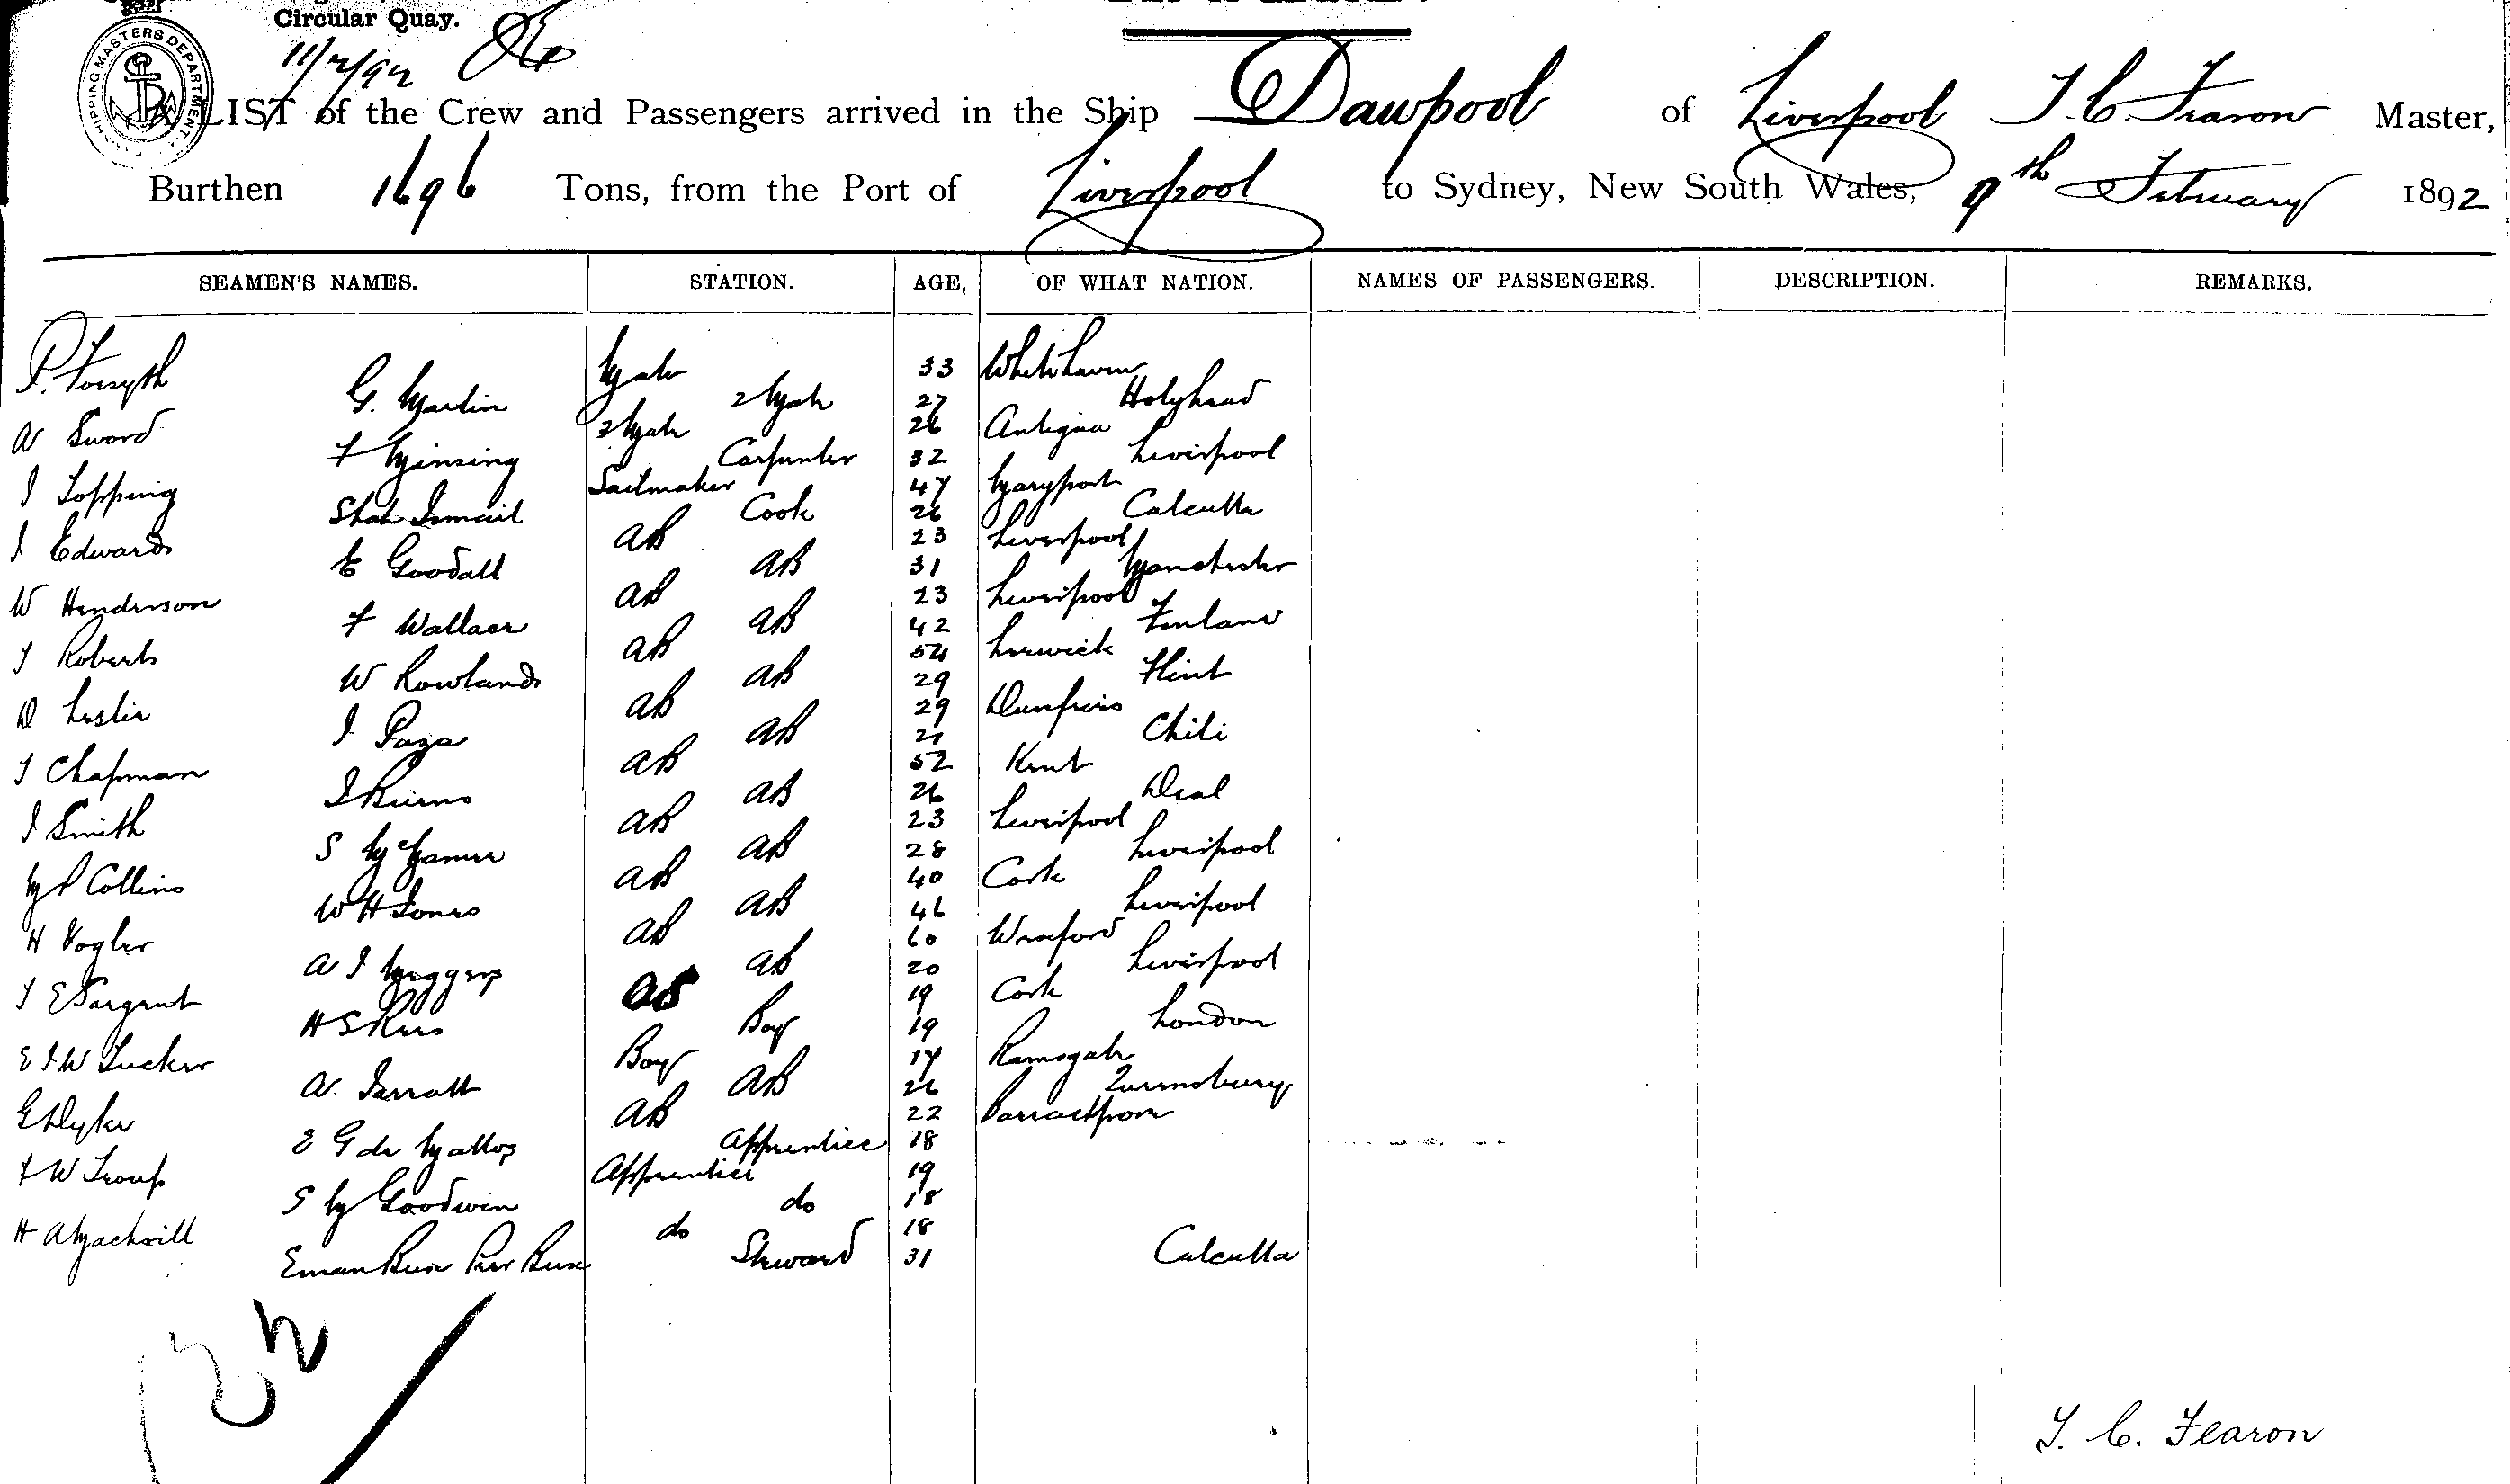 Circular Quay.
SHIPPING MASTERS DEPARTMENT
11/2/92
A LIST of the Crew and Passengers arrived in the Ship Dawpool of Liverpool T. C. Fearon Master,
Burthen 1696 Tons, from the Port of Liverpool to Sydney, New South Wales, 9th February 1892
SEAMEN'S NAMES. STATION. AGE. OF WHAT NATION. NAMES OF PASSENGERS. DESCRIPTION. REMARKS.
P. Forsyth Mate 33 Whitehaven
G. Martin 2 Mate 27 Holyhead
A Sword 3 Mate 26 Antigua
F Minsing Carpenter 32 Liverpool
J Topping Sailmaker 47 Maryport
Shah Ismail Cook 26 Calcutta
J Edwards AB 23 Liverpool
E Goodall AB 31 Manchester
W Henderson AB 23 Liverpool
F Wallace AB 42 Finland
J Roberts AB 54 Lerwick
W Rowlands AB 29 Flint
D Leslie AB 29 Dumfries
J Paza AB 21 Chili
J Chapman AB 52 Kent
J Burns AB 26 Deal
J Smith AB 23 Liverpool
S McNamee AB 28 Liverpool
M P Collins AB 40 Cork
W H Jones AB 46 Liverpool
H Vogler AB 60 Wexford
A J Meggens AB 20 Liverpool
T E Sargent AB 19 Cork
H S Rees Boy 19 London
E J W Tucker Boy 17 Ramsgate
A. Jarratt AB 26 Queensbury
G Dyker AB 22 Barrackpore
E G de Mattos Apprentice 18
F W Troup Apprentice 19
S M Goodwin do 18
H A Mackrill do 18
Eman Bux Peer Bux Steward 31 Calcutta
32
T. C. Fearon